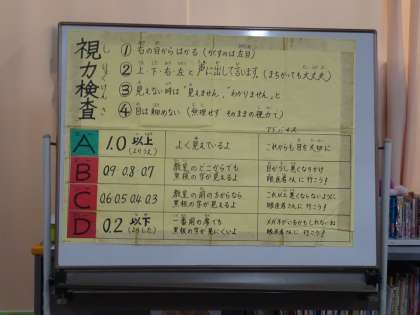 視力検査
しりょくけんさ
① 右の目からはかる (かくすのは左目)
② 上・下・右・左と声に出して言います。(まちがっても大丈夫)
③ 見えない時は"見えません。""わかりません。"と
④ 目は細めない (無理せず そのままの視力で)
アドバイス
A 1.0 以上 よく見えているよ これからも目を大切に
B 0.9 0.8 0.7 教室のどこからでも
黒板の字が見えるよ
目がすこし悪くなりかけ
眼医者さんに行こう!
C 0.6 0.5 0.4 0.3 教室の前の方からなら
黒板の字が見えるよ
これ以上悪くならないように
眼医者さんに行こう!
D 0.2 以下 一番前の席でも
黒板の字が見にくいよ
メガネがいるかもしれないね
眼医者さんに行こう!